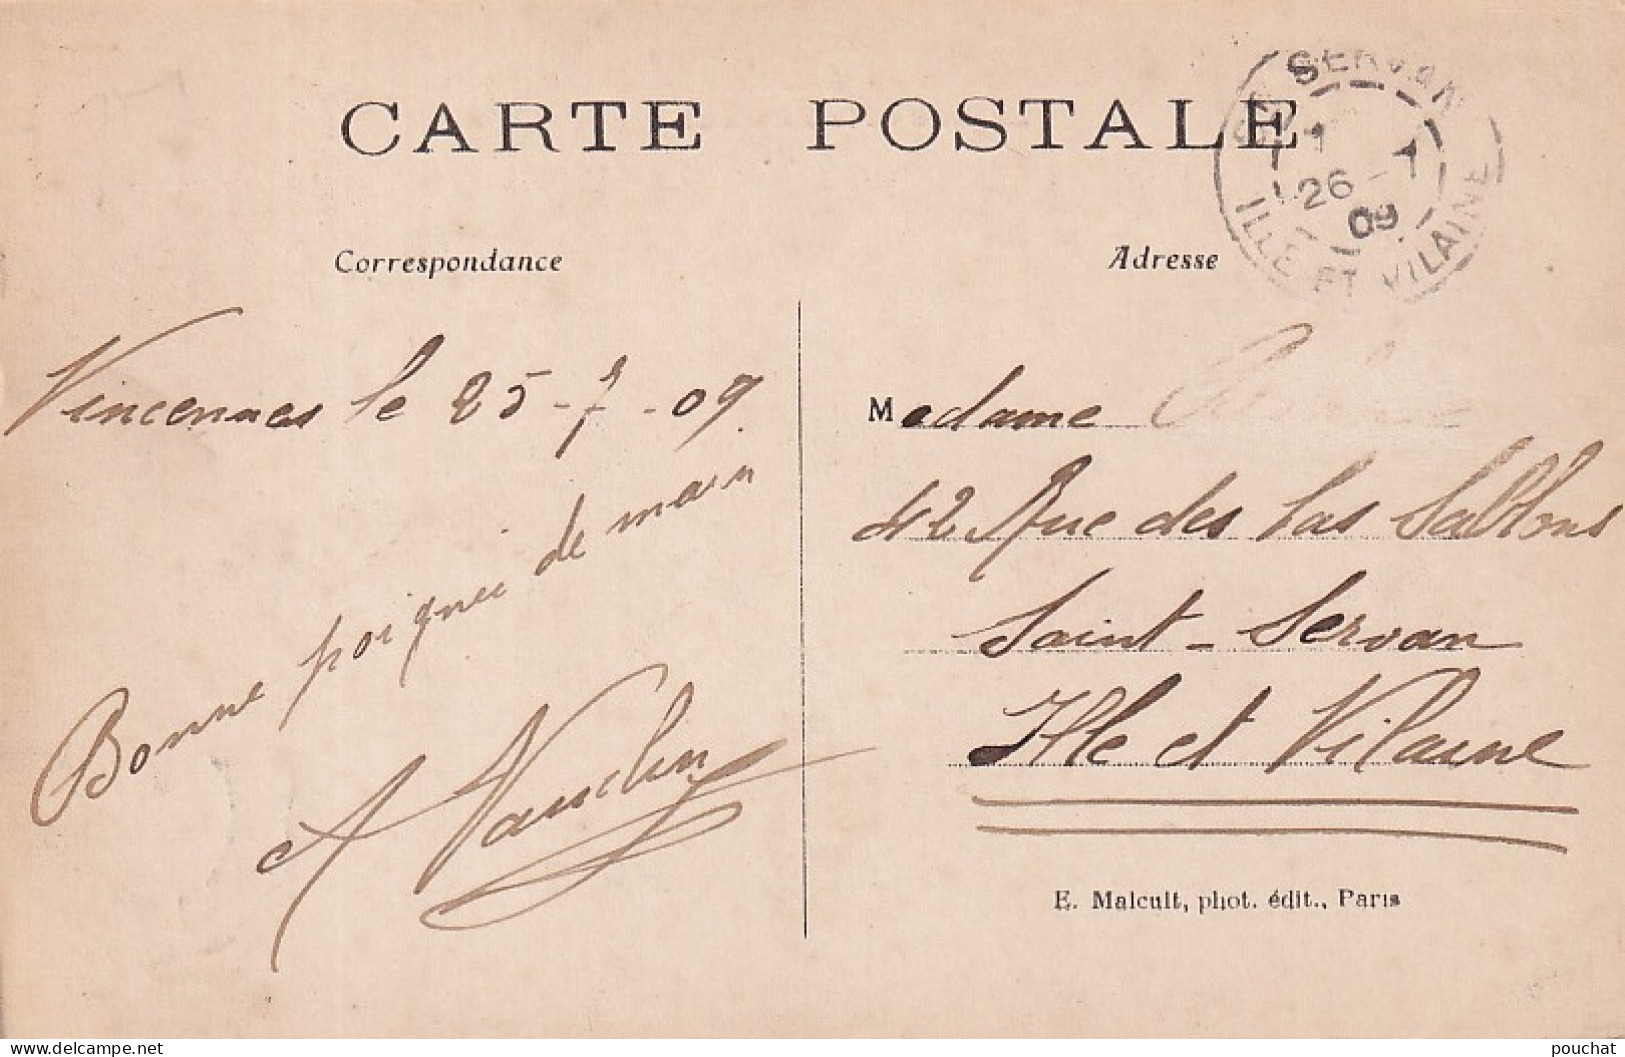 CARTE POSTALE
Sᵀ SERVAN
1
26 - 7
09
ILLE ET VILAINE
Correspondance
Adresse
Vincennes le 25-7-09
Bonne poignée de main
A
Madame
42 Rue des bas Sablons
Saint-Servan
Ille et Vilaine
E. Malcuit, phot. édit., Paris
delcampe.net
pouchat